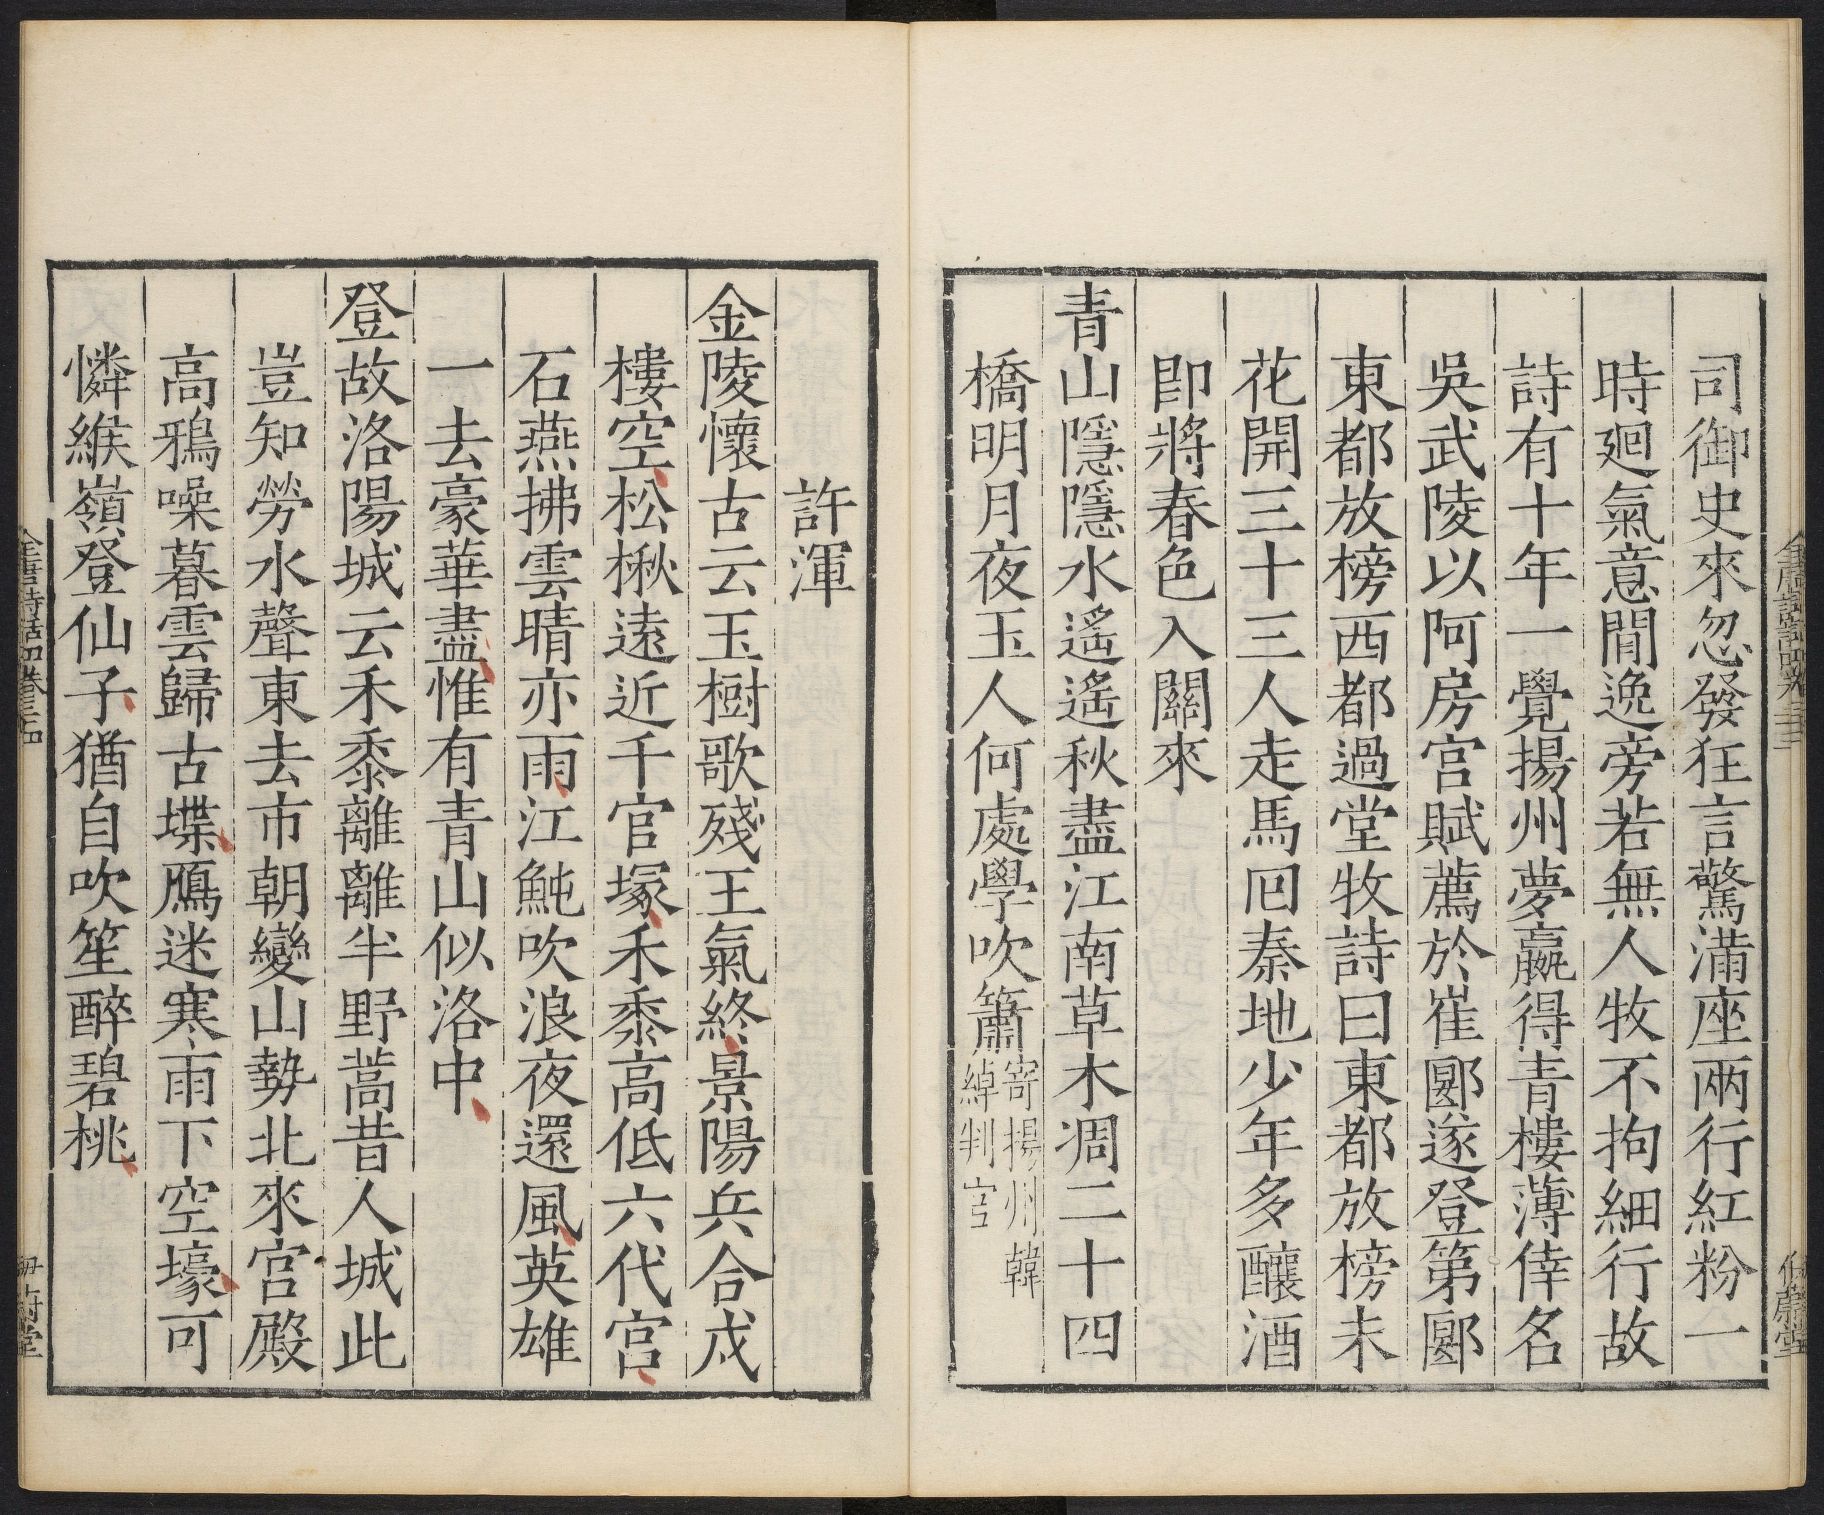 司御史來忽發狂言驚滿座兩行紅粉一
時廻氣意閒逸旁若無人牧不拘細行故
詩有十年一覺揚州夢嬴得青樓薄倖名
吳武陵以阿房宮賦薦於崔郾遂登第郾
東都放榜西都過堂牧詩曰東都放榜未
花開三十三人走馬囘秦地少年多釀酒
卽將春色入關來
青山隱隱水遙遙秋盡江南草木凋二十四
橋明月夜玉人何處學吹簫寄揚州韓
綽判官
許渾
金陵懷古云玉樹歌殘王氣終景陽兵合戍
樓空松楸遠近千官塚禾黍高低六代宮
石燕拂雲晴亦雨江魨吹浪夜還風英雄
一去豪華盡惟有青山似洛中
登故洛陽城云禾黍離離半野蒿昔人城此
豈知勞水聲東去市朝變山勢北來宮殿
高鴉噪暮雲歸古堞鴈迷寒雨下空壕可
憐緱嶺登仙子猶自吹笙醉碧桃